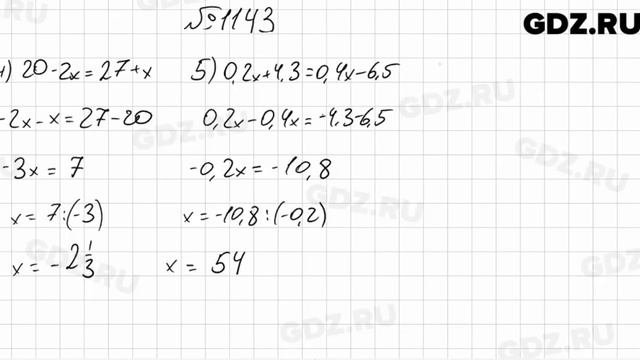 №1143
GDZ.RU
) 20-2x=27+x
5) 0,2x+4,3=0,4x-6,5
-2x-x=27-20
0,2x-0,4x=-4,3-6,5
-3x=7
-0,2x=-10,8
x=7:(-3)
x=-10,8:(-0,2)
x=-2 1/3
x=54
GDZ.RU
GDZ.RU
GDZ.RU
GDZ.RU
GDZ.RU
GDZ.RU
GDZ.RU
GDZ.RU